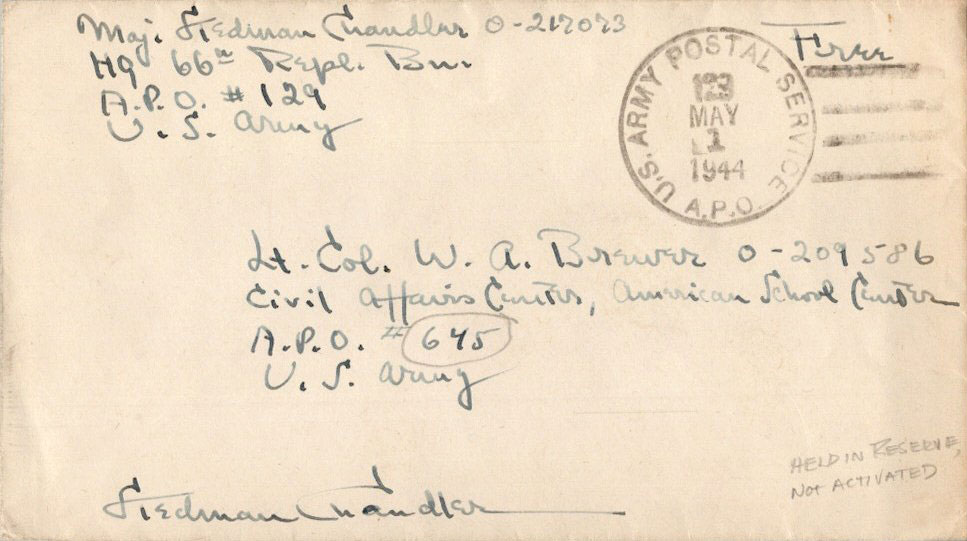 Maj. Stedman Chandler O-217073
Free
HQ 66th Repl. Bn.
A.P.O. # 129
U. S. Army
U.S. ARMY POSTAL SERVICE
A.P.O.
123
MAY
1
1944
Lt. Col. W. A. Brewer O-209586
Civil Affairs Center, American School Center
A.P.O. # 645
U. S. Army
HELD IN RESERVE,
NOT ACTIVATED
Stedman Chandler